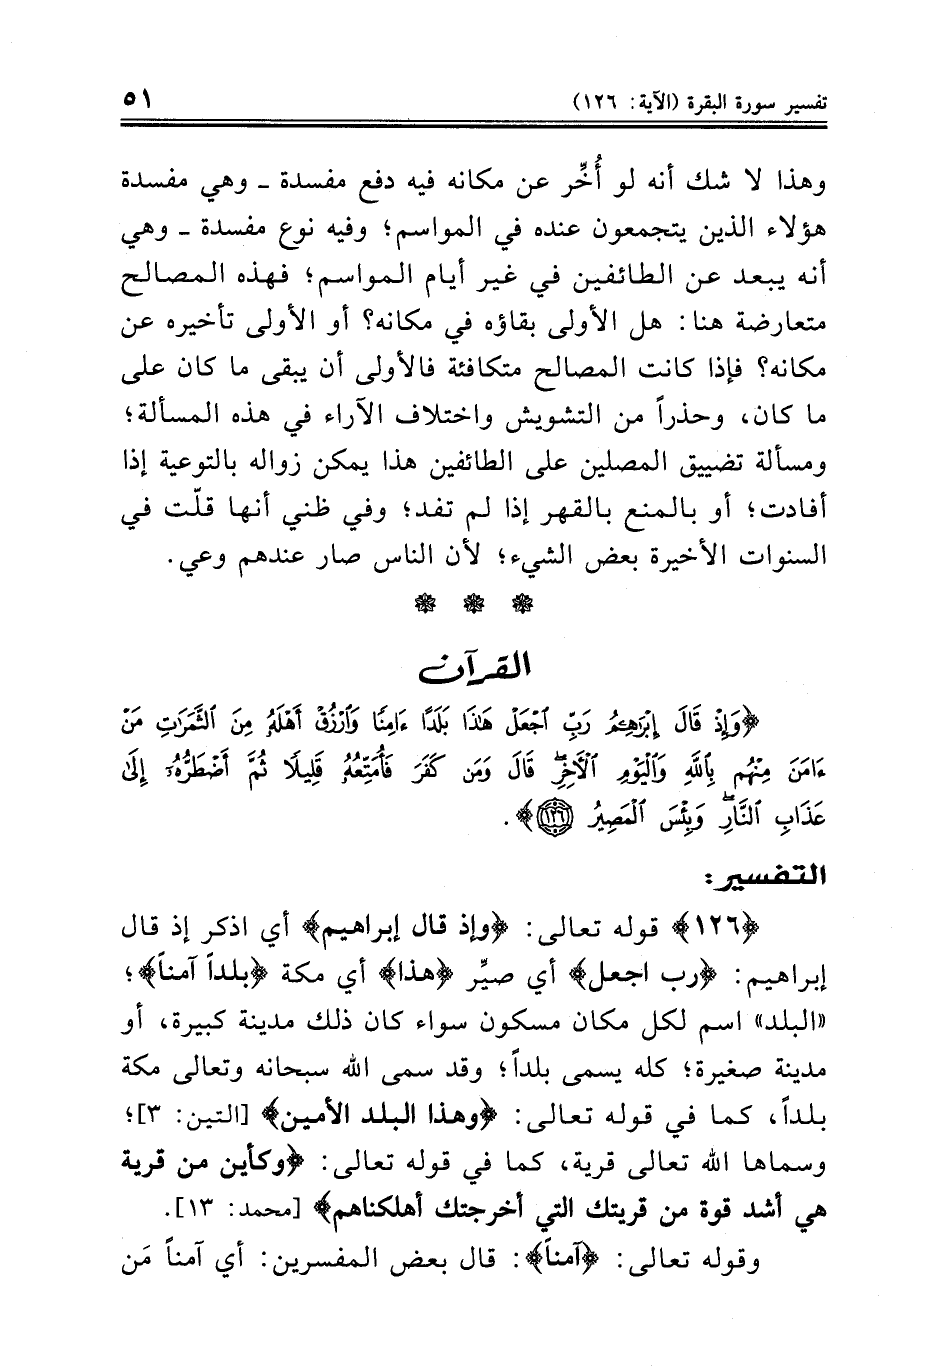 تفسير سورة البقرة (الآية: ١٢٦) ٥١
وهذا لا شك أنه لو أُخِّر عن مكانه فيه دفع مفسدة ـ وهي مفسدة
هؤلاء الذين يتجمعون عنده في المواسم؛ وفيه نوع مفسدة ـ وهي
أنه يبعد عن الطائفين في غير أيام المواسم؛ فهذه المصالح
متعارضة هنا: هل الأولى بقاؤه في مكانه؟ أو الأولى تأخيره عن
مكانه؟ فإذا كانت المصالح متكافئة فالأولى أن يبقى ما كان على
ما كان، وحذراً من التشويش واختلاف الآراء في هذه المسألة؛
ومسألة تضييق المصلين على الطائفين هذا يمكن زواله بالتوعية إذا
أفادت؛ أو بالمنع بالقهر إذا لم تفد؛ وفي ظني أنها قلّت في
السنوات الأخيرة بعض الشيء؛ لأن الناس صار عندهم وعي.
القرآن
﴿وَإِذْ قَالَ إِبْرَٰهِـۧمُ رَبِّ ٱجْعَلْ هَٰذَا بَلَدًا ءَامِنًا وَٱرْزُقْ أَهْلَهُۥ مِنَ ٱلثَّمَرَٰتِ مَنْ
ءَامَنَ مِنْهُم بِٱللَّهِ وَٱلْيَوْمِ ٱلْأَخِرِ ۖ قَالَ وَمَن كَفَرَ فَأُمَتِّعُهُۥ قَلِيلًا ثُمَّ أَضْطَرُّهُۥٓ إِلَىٰ
عَذَابِ ٱلنَّارِ ۖ وَبِئْسَ ٱلْمَصِيرُ ١٢٦﴾.
التفسير:
﴿١٢٦﴾ قوله تعالى: ﴿وإذ قال إبراهيم﴾ أي اذكر إذ قال
إبراهيم: ﴿رب اجعل﴾ أي صيِّر ﴿هذا﴾ أي مكة ﴿بلداً آمناً﴾؛
«البلد» اسم لكل مكان مسكون سواء كان ذلك مدينة كبيرة، أو
مدينة صغيرة؛ كله يسمى بلداً؛ وقد سمى الله سبحانه وتعالى مكة
بلداً، كما في قوله تعالى: ﴿وهذا البلد الأمين﴾ [التين: ٣]؛
وسماها الله تعالى قرية، كما في قوله تعالى: ﴿وكأين من قرية
هي أشد قوة من قريتك التي أخرجتك أهلكناهم﴾ [محمد: ١٣].
وقوله تعالى: ﴿آمناً﴾: قال بعض المفسرين: أي آمناً مَن